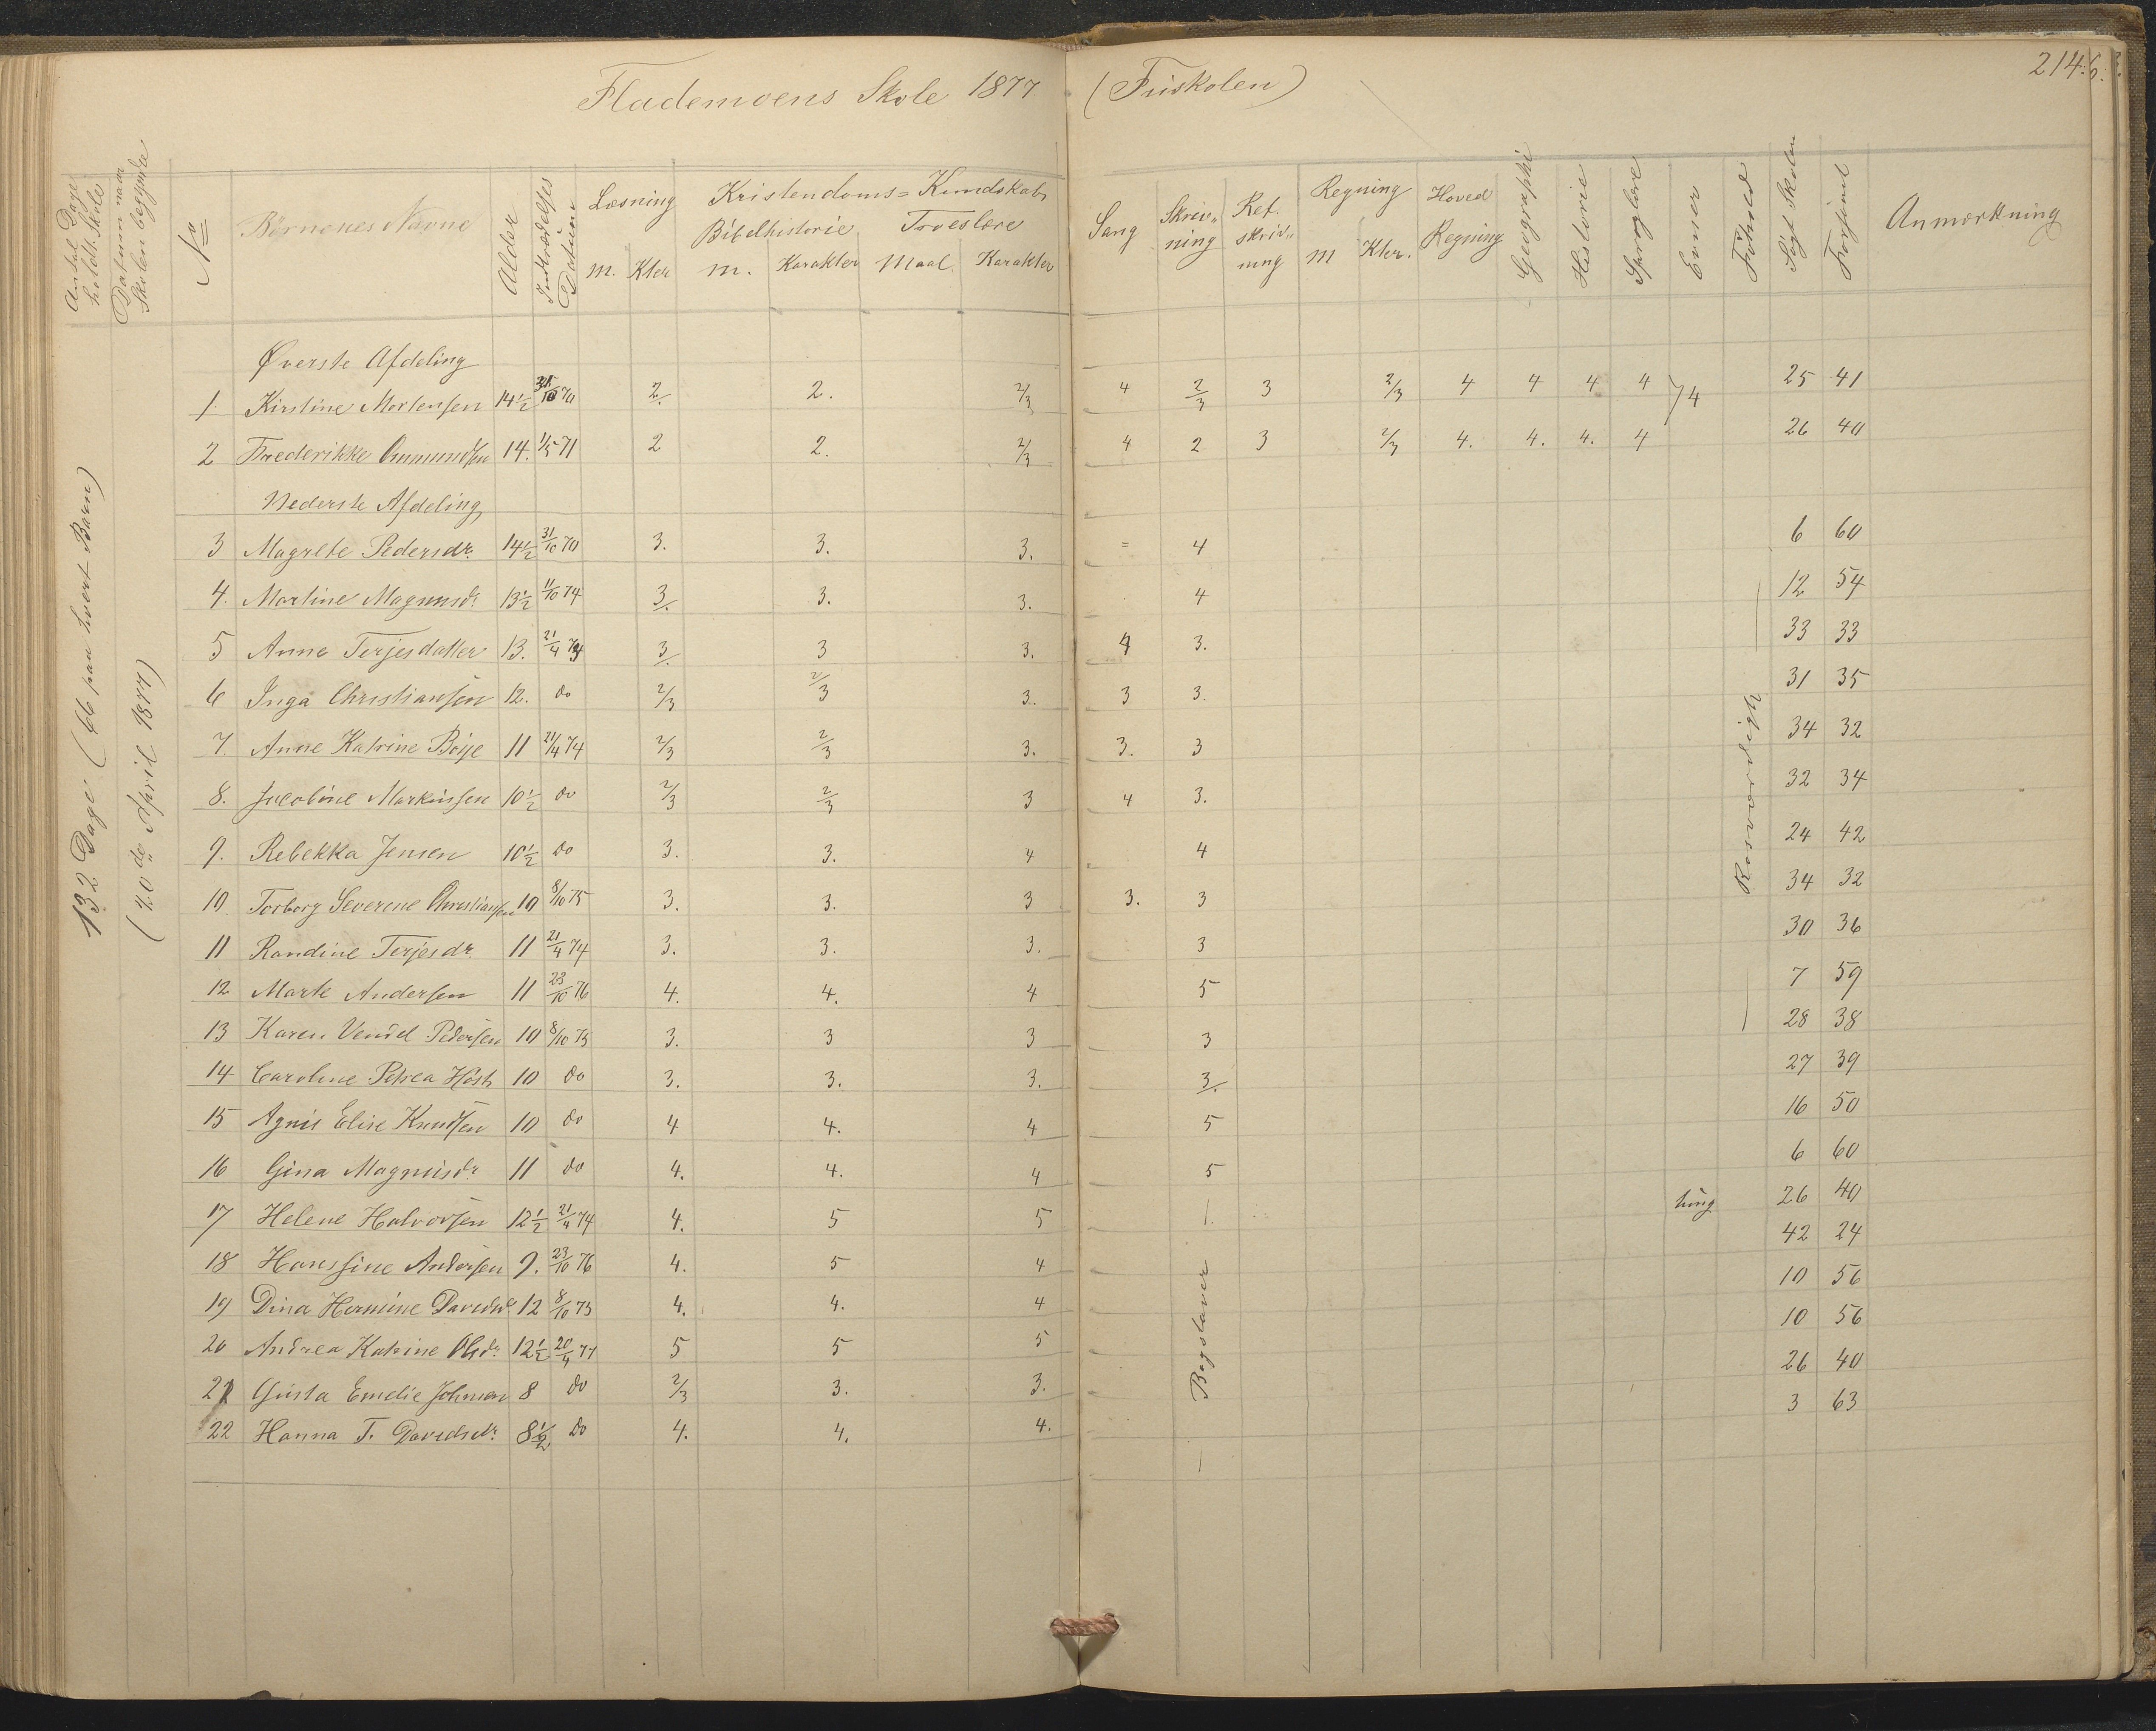 Flademoens Skole 1877 (Friskolen)
214.
Antal Dage holdt Skole
Datum naar Skolen begyndte
No
Børnenes Navne
Alder
Indtrædelses Datum
Læsning
m. Kter
Kristendoms=Kundskab
Bibelhistorie
m. Karakter
Troeslære
Maal Karakter
Sang
Skriv„ning
Ret.skriv„ning
Regning
m Kter.
Hoved Regning
Geographi
Historie
Sproglære
Evner
Forhold
Søgt Skolen
Forsømt
Anmærkning
132 Dage (66 paa hvert Barn)
April 1877)
Øverste Afdeling
1. Kirstine Mortensen 14½ 31/10 70 2. 2. 2/3 4 2/3 3 2/3 4 4 4 4 } 4 25 41
2 Frederikke Ommundsen 14. 1/5 71 2 2. 2/3 4 2 3 2/3 4. 4. 4. 4 26 40
Nederste Afdeling
3 Magrete Pedersdr. 14½ 31/10 70 3. 3. 3. = 4 6 60
4. Martine Magnusdr 13½ 11/10 74 3. 3. 3. 4 12 54
5 Anne Terjesdatter 13. 21/4 74 3. 3 3. 4 3. 33 33
6 Inga Christiansen 12. do 2/3 2/3 3. 3 3. 31 35
7. Anne Katrine Boije 11 21/4 74 2/3 2/3 3. 3. 3 34 32
8. Jacobine Markussen 10½ do 2/3 2/3 3 4 3. 32 34
9. Rebekka Jensen 10½ do 3. 3. 4 4 24 42
10. Torborg Severine Christiansen 10 8/10 75 3. 3. 3 3. 3 34 32
11 Randine Terjesdr. 11 21/4 74 3. 3. 3. 3 30 36
12 Marte Andersen 11 23/10 76 4. 4. 4 5 7 59
13 Karen Vendel Pedersen 10 8/10 75 3. 3 3 3 28 38
14 Caroline Petrea Høst 10 do 3. 3. 3. 3. 27 39
15 Agnes Elise Knudsen 10 do 4 4. 4 5 16 50
16 Gina Magnusdr 11 do 4. 4. 4 5 6 60
17 Helene Halvorsen 12½ 21/4 74 4. 5 5 26 40
18 Hanssine Andersen 9. 23/10 76 4. 5 4 42 24
19 Dina Hermine Davidsd. 12 8/10 75 4. 4. 4 10 56
20 Andrea Katrine Olsdr. 12½ 20/4 77 5 5 5 10 56
21 Gusta Emelie Johnsen 8 do 2/3 3. 3. 26 40
22 Hanna T. Davidsdr. 8½ do 4. 4. 4. 3 63
Bogstaver
Rosværdigt